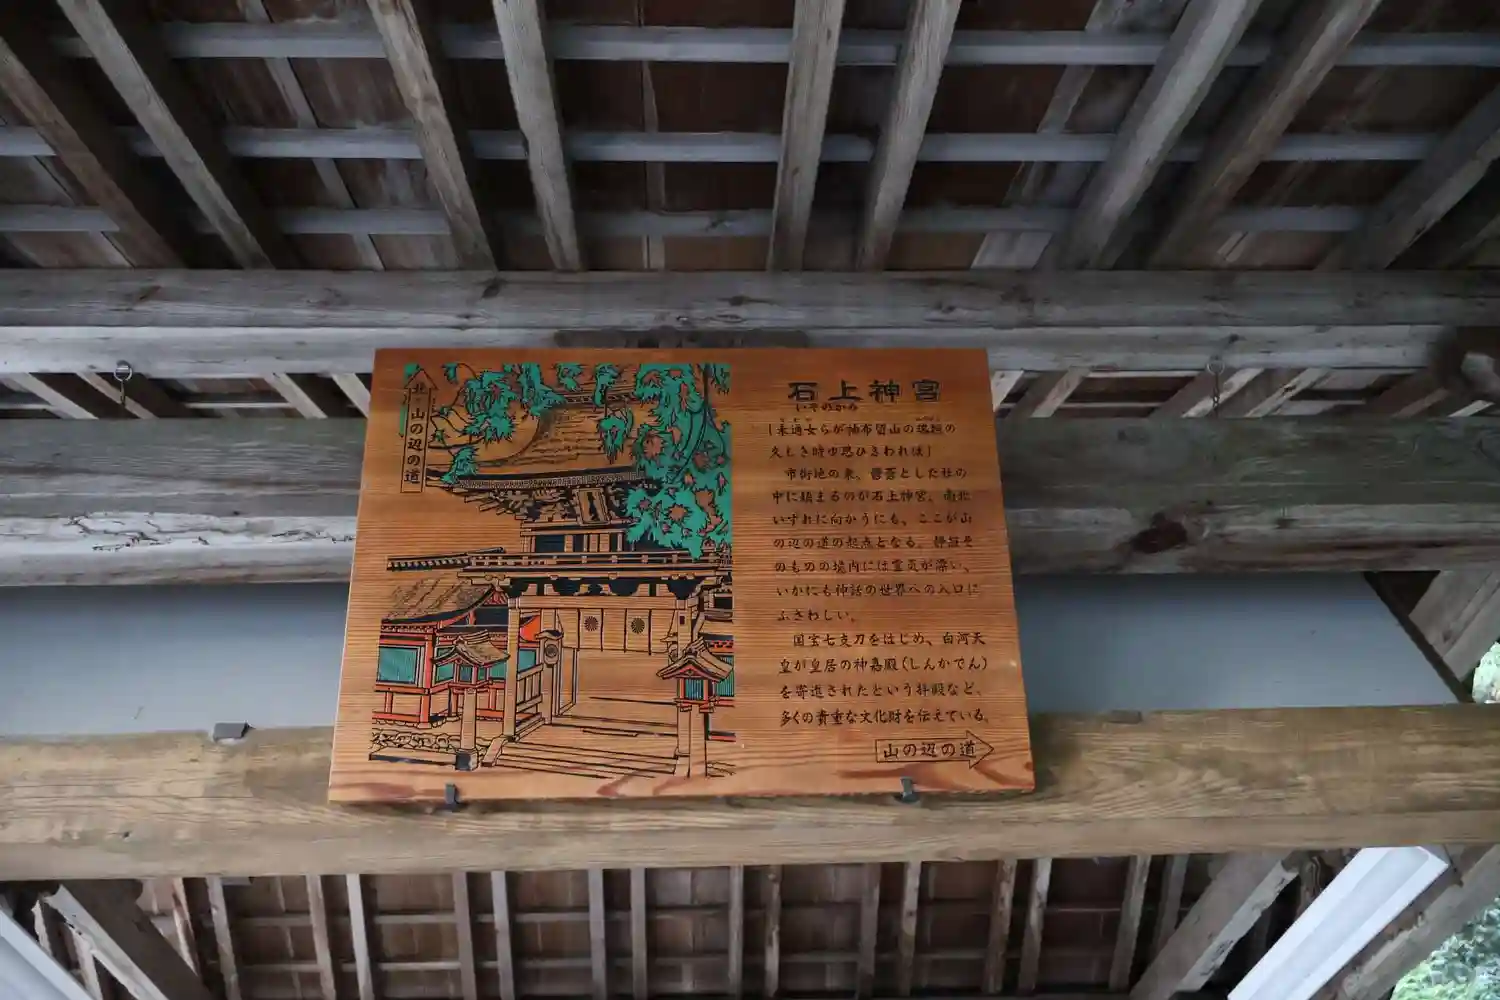 北 山の辺の道
石上神宮
いそのかみ
「未通女らが袖布留山の瑞垣の
久しき時ゆ思ひきわれは」
市街地の東、鬱蒼とした杜の
中に鎮まるのが石上神宮。南北
いずれに向かうにも、ここが山
の辺の道の起点となる。静謐そ
のものの境内には霊気が漂い、
いかにも神話の世界への入口に
ふさわしい。
国宝七支刀をはじめ、白河天
皇が皇居の神嘉殿(しんかでん)
を寄進されたという拝殿など、
多くの貴重な文化財を伝えている。
山の辺の道